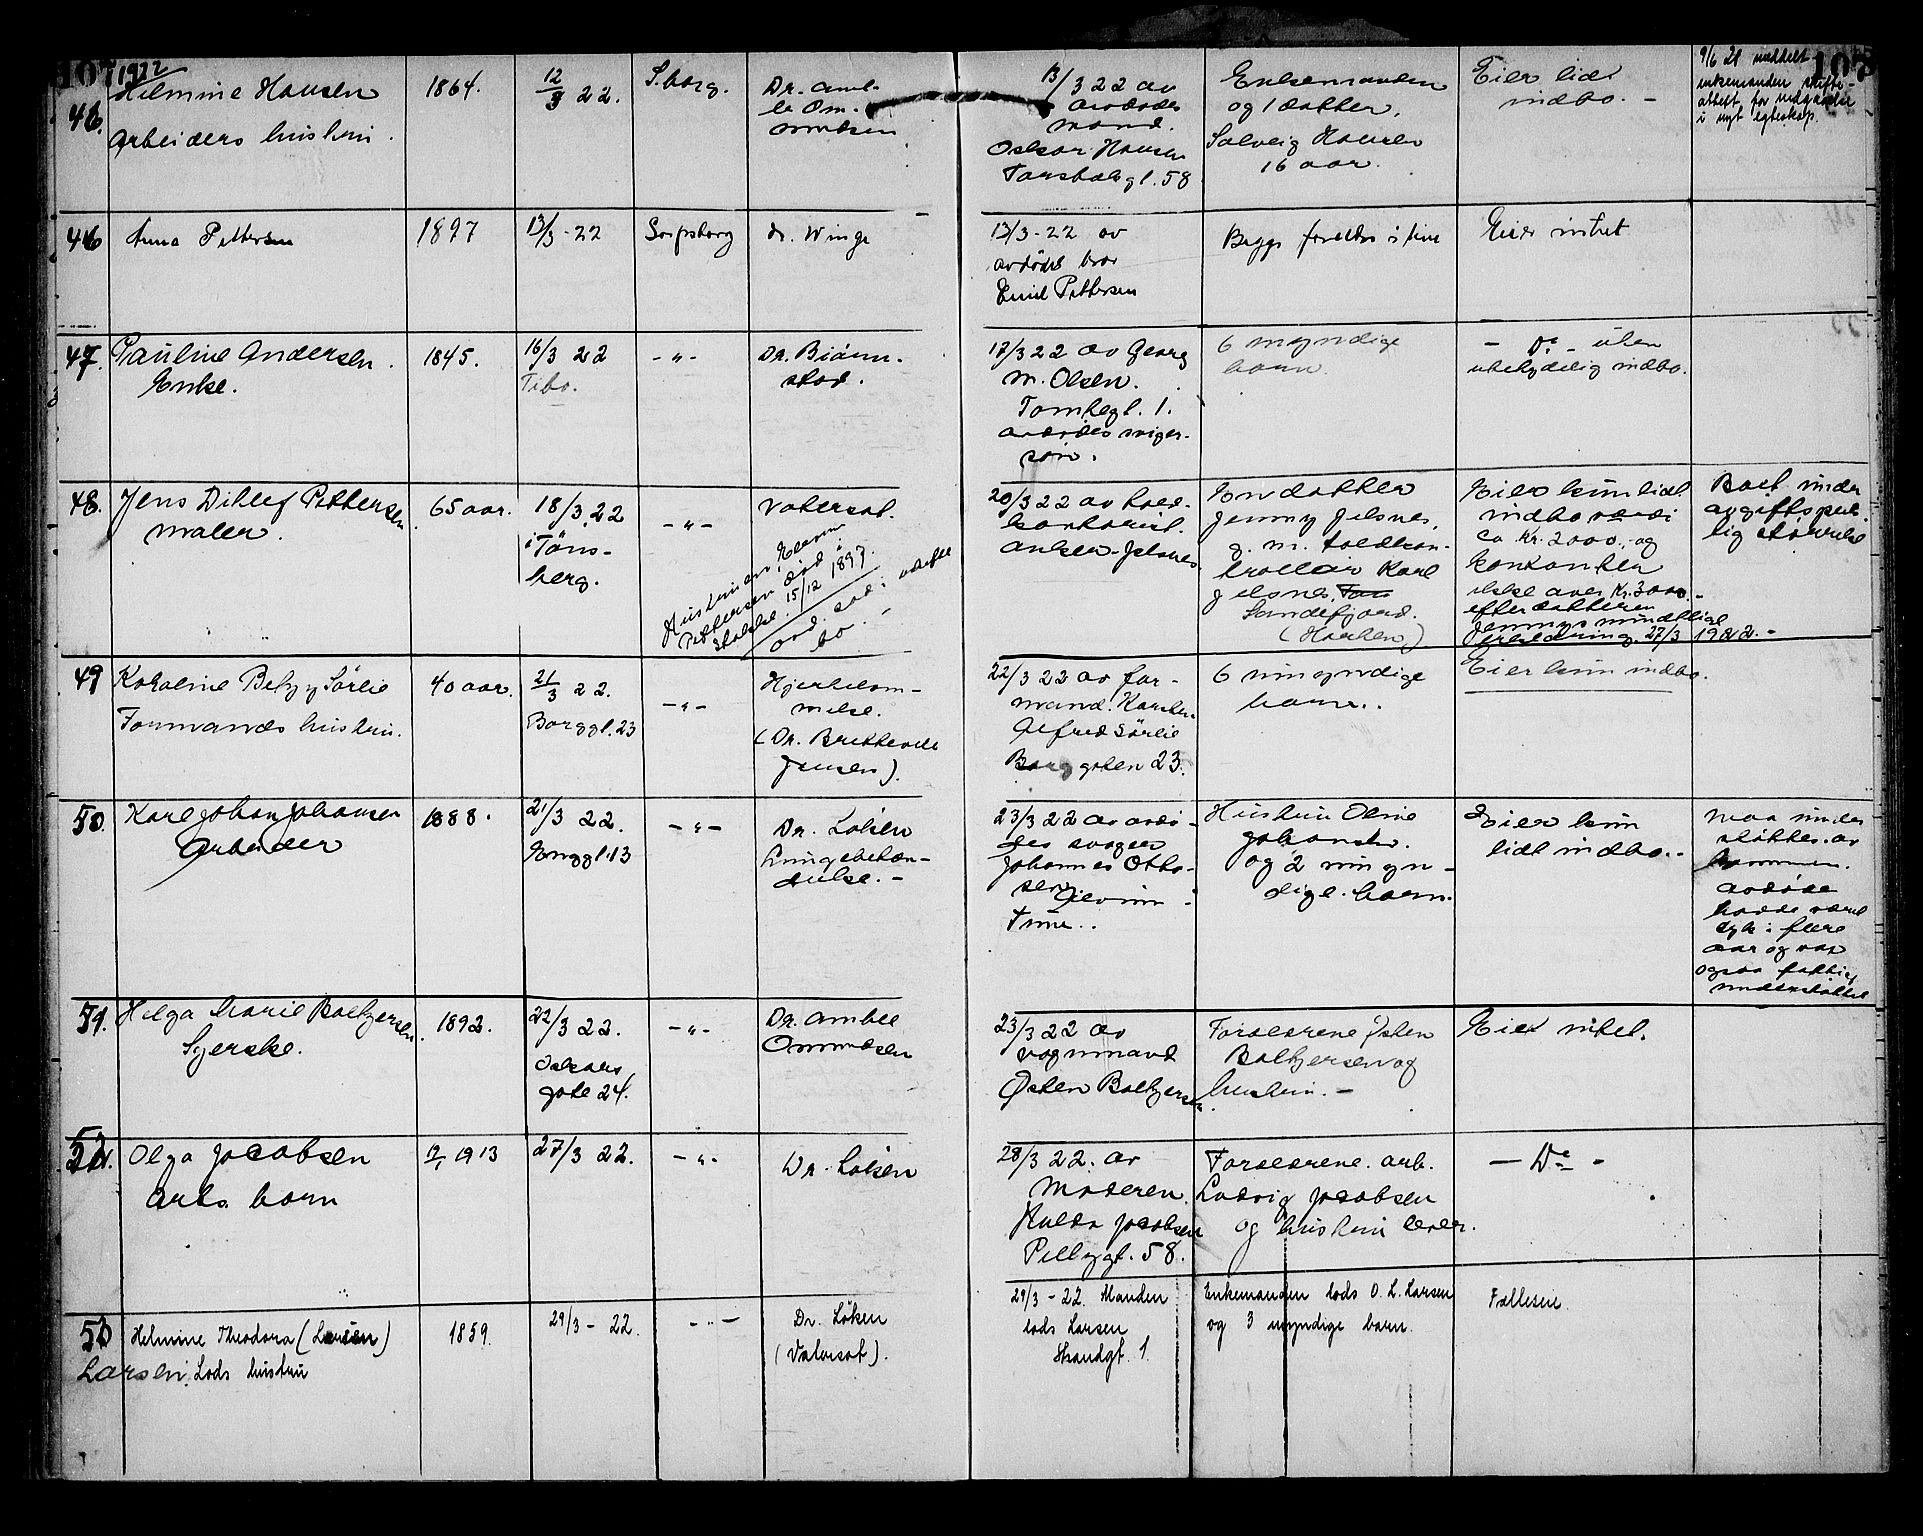 107
1922
107
46. Helmine Hansen
Arbeiders hustru.
1864.
12/3 22.
S.borg.
Dr. Amb-
le Om-
mundsen
13/3 22 av
avdødes
mand.
Oskar Hansen
Torsbækgt. 58
Enkemanden
og 1 datter,
Solveig Hansen
16 aar.
Eier lidt
indbo. -
9/6 21 meddelt
enkemanden skifte-
attest for indgaaelse
i nyt egteskap.
46 Anna Pettersen
1897
13/3 - 22
Sarpsborg
dr. Winge
13/3 - 22 av
avdødes bror
Emil Pettersen
Begge forældre i live
Eier intet
47. Pauline Andersen.
Enke.
1845.
16/3 22
Tibo.
- " -
Dr. Bjørn-
stad.
17/3 22 av Georg
M. Olsen.
Tombegt. 1.
avdødes sviger-
søn.
6 myndige
barn.
- Do - uten
ubetydelig indbo.
48. Jens Ditlef Pettersen
maler.
65 aar.
18/3 22
i Tøns-
berg.
- " -
Vatersot.
Hustruen, Maren
Pettersen død i
Skotske 15/12 1897.
avd. sad i uskiftet
bo.
20/3 22 av told-
kontorist
Anker Jelsnes
En datter
Jenny Jelsnes,
g. m. toldkon-
trollør Karl
Jelsnes,
Sandefjord.
(Horten)
Eier kun lidt
indbo værdi
ca Kr. 2000, og
kontanter
ikke over Kr. 3000.-
efter datteren
Jennys mundtlige
erklæring 27/3 1922.-
Boet under
avgiftsplik-
tig størrelse
49 Karoline Betzy Sørlie
Formands hustru.
40 aar.
21/3 22.
Borggt. 23
- " -
Hjertelam-
melse.
(Dr. Brettevile
Jensen).
22/3 22 av for-
mand. Karsten
Alfred Sørlie
Borggaten 23.
6 umyndige
barn..
Eier kun indbo.
50. Karl Johan Johansen
Arbeider
1888.
21/3 22.
Enggt. 13
- " -
Dr. Løken
Lungebetæn-
delse. -
23/3 22 av avdø-
des svoger
Johannes Otto-
sen,
Tune..
Hustru Oline
Johansen.
og 2 umyn-
dige barn.
Eier kun
lidt indbo. -
Maa under-
støttes av
kommunen.
Avdøde
hadde været
syk i flere
aar og var
ogsaa fattig
understøttet
51. Helga Marie Baltzersen.
Syerske.
1892.
22/3 22.
Oskars
gate 24.
- " -
Dr. Amble
Ommundsen
23/3 22 av
vognmand
Østen Baltzersen
Forældrene Østen
Baltzersen og
hustru. -
Eier intet.
52. Olga Jacobsen
Arb. barn
1913
27/3 22.
- " -
Dr. Løken
28/3 22. av
Moderen
Hulda Jacobsen
Pellygt. 58.
Forældrene. arb.
Ludvig Jacobsen
og hustru lever.
- Do -
53 Helmine Theodora (Larsen)
Larsen, Lods hustru
1859.
29/3 - 22.
- " -
Dr. Løken
(Vatersot).
29/3 - 22. Manden
lods Larsen
Strandgt. 1
Enkemanden lods O. L. Larsen
og 3 umyndige barn.
Fælleseie.